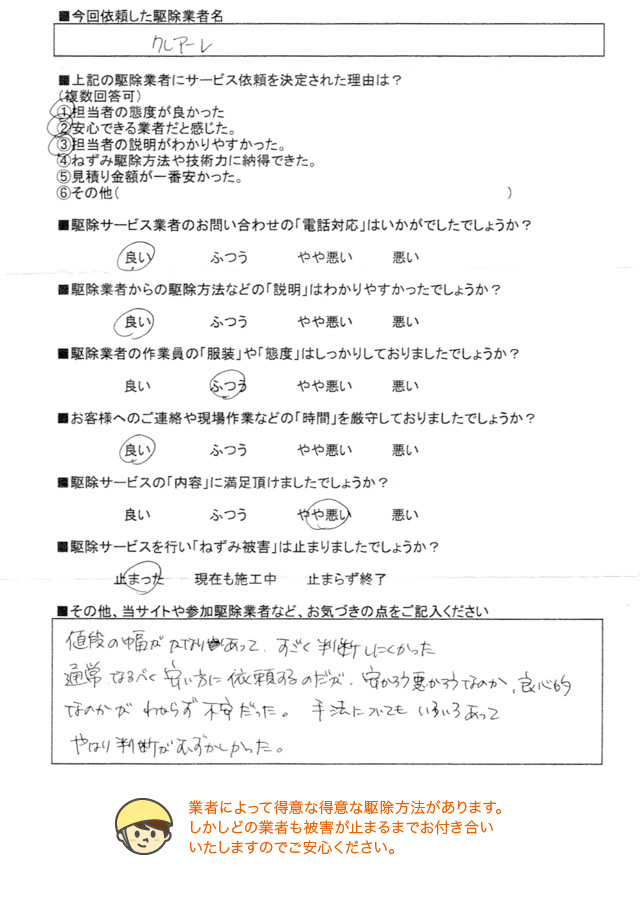 ■今回依頼した駆除業者名
クレアーレ
■上記の駆除業者にサービス依頼を決定された理由は？
（複数回答可）
①担当者の態度が良かった
②安心できる業者だと感じた。
③担当者の説明がわかりやすかった。
④ねずみ駆除方法や技術力に納得できた。
⑤見積り金額が一番安かった。
⑥その他（　　　）
■駆除サービス業者のお問い合わせの「電話対応」はいかがでしたでしょうか？
良い　ふつう　やや悪い　悪い
■駆除業者からの駆除方法などの「説明」はわかりやすかったでしょうか？
良い　ふつう　やや悪い　悪い
■駆除業者の作業員の「服装」や「態度」はしっかりしておりましたでしょうか？
良い　ふつう　やや悪い　悪い
■お客様へのご連絡や現場作業などの「時間」を厳守しておりましたでしょうか？
良い　ふつう　やや悪い　悪い
■駆除サービスの「内容」に満足頂けましたでしょうか？
良い　ふつう　やや悪い　悪い
■駆除サービスを行い「ねずみ被害」は止まりましたでしょうか？
止まった　現在も施工中　止まらず終了
■その他、当サイトや参加駆除業者など、お気づきの点をご記入ください
値段の幅がかなりあって、すごく判断しにくかった
通常なるべく安い方に依頼するのだが、安かろう悪かろうなのか、良心的
なのかがわからず不安だった。手法についてもいろいろあって
やはり判断がむずかしかった。
業者によって得意な得意な駆除方法があります。
しかしどの業者も被害が止まるまでお付き合い
いたしますのでご安心ください。